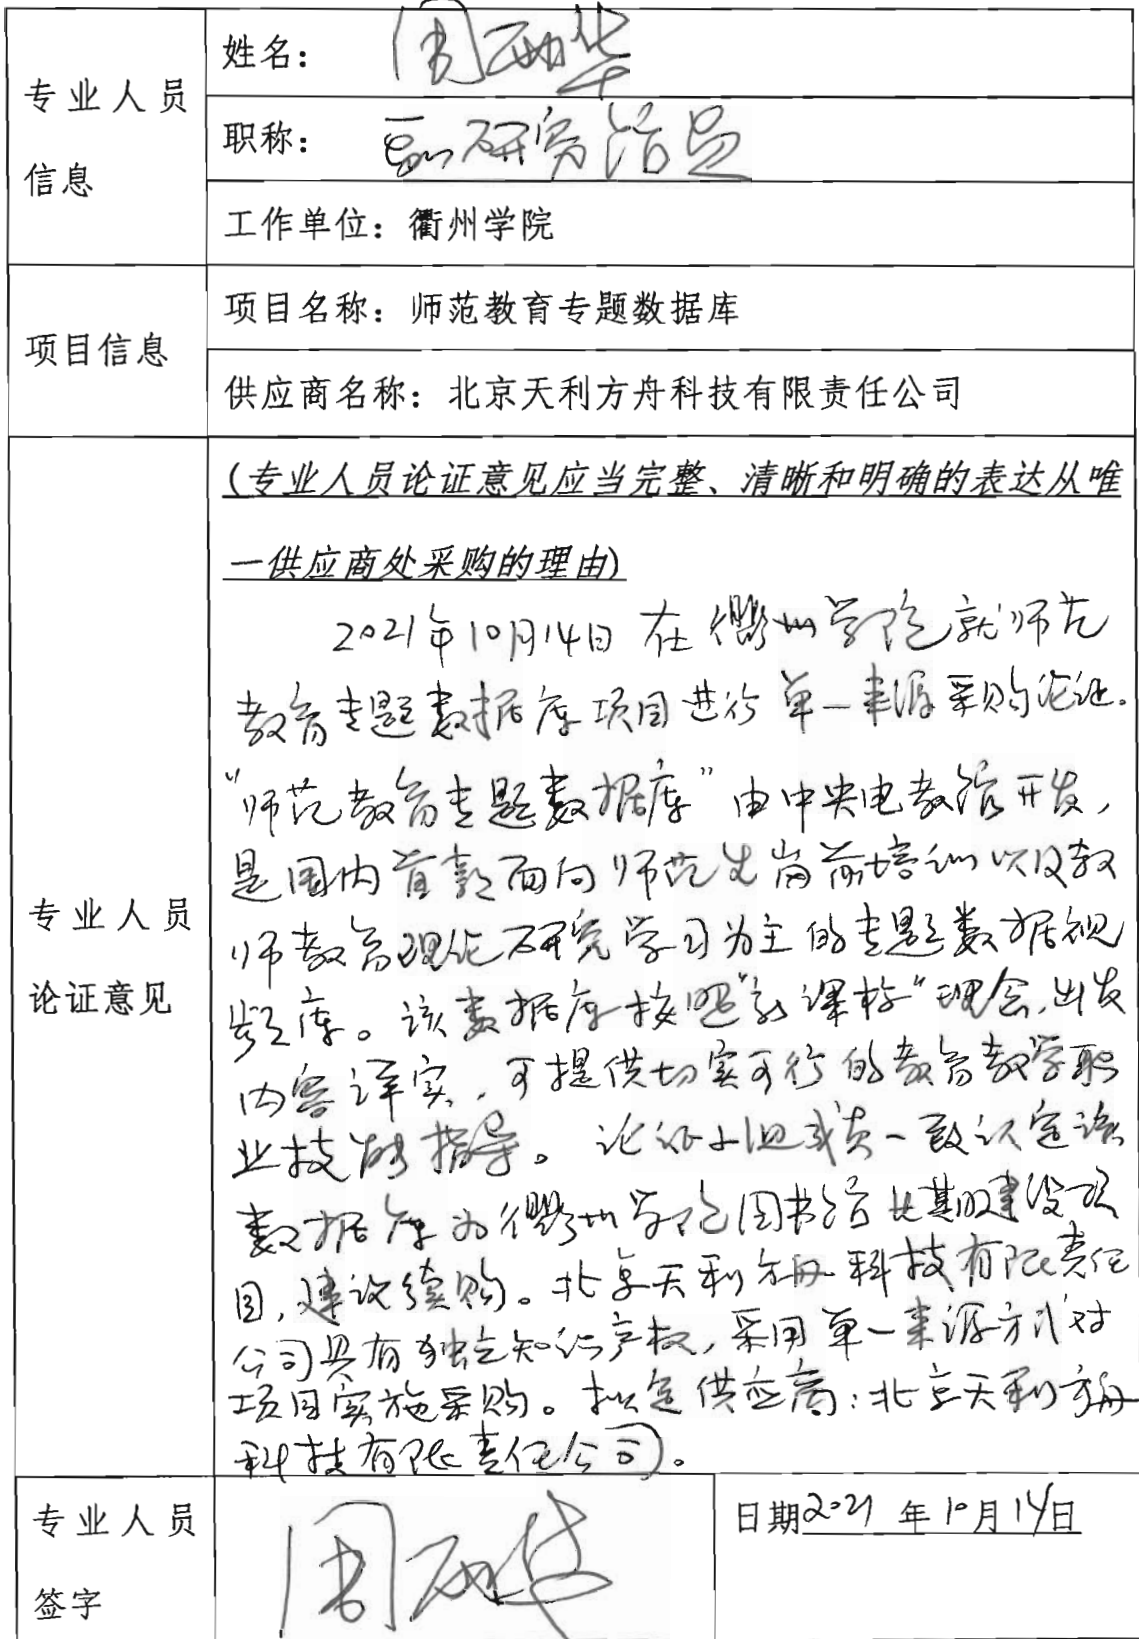 专业人员
信息
姓名：周丽华
职称：副研究馆员
工作单位：衢州学院
项目信息
项目名称：师范教育专题数据库
供应商名称：北京天利方舟科技有限责任公司
专业人员
论证意见
(专业人员论证意见应当完整、清晰和明确的表达从唯
一供应商处采购的理由)
2021年10月14日在衢州学院就师范
教育专题数据库项目进行单一来源采购论证。
“师范教育专题数据库”由中央电教馆开发，
是国内首款面向师范生岗前培训以及教
师教育理论研究学习为主的专题数据视
频库。该数据库按照“新课标”理念，出发
内容详实，可提供切实可行的教育教学职
业技能指导。论证小组成员一致认定该
数据库为衢州学院图书馆 建设项
目，建议续购。北京天利方舟科技有限责任
公司具有独立知识产权，采用单一来源方式对
项目实施采购。拟定供应商：北京天利方舟
科技有限责任公司。
专业人员
签字
周丽华
日期2021年10月14日